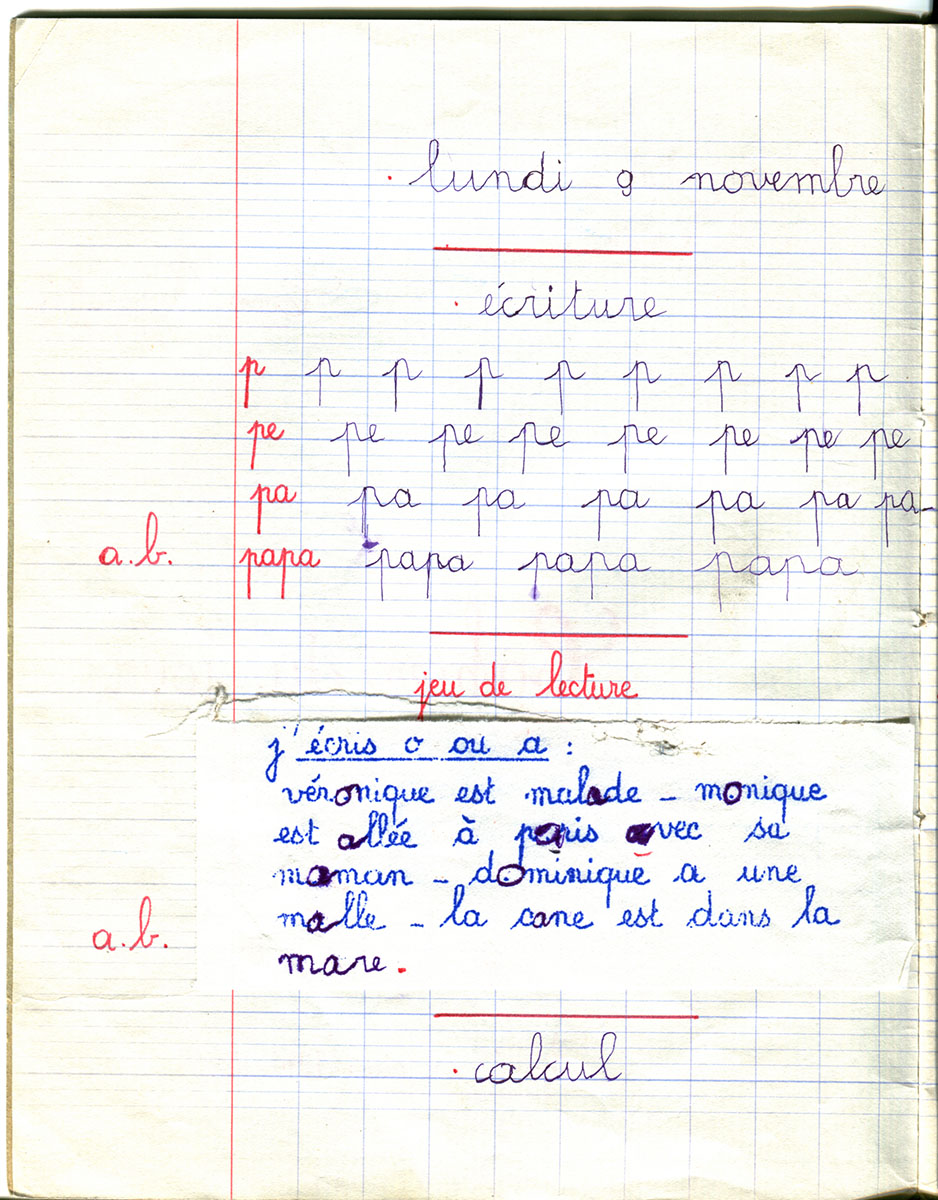 lundi 9 novembre
écriture
p p p p p p p p p
pe pe pe pe pe pe pe pe
pa pa pa pa pa pa pa
a.b. papa papa papa papa
jeu de lecture
j'écris o ou a :
véronique est malade - monique
est allée à paris avec sa
maman - dominique a une
malle - la cane est dans la
a.b.
mare.
calcul